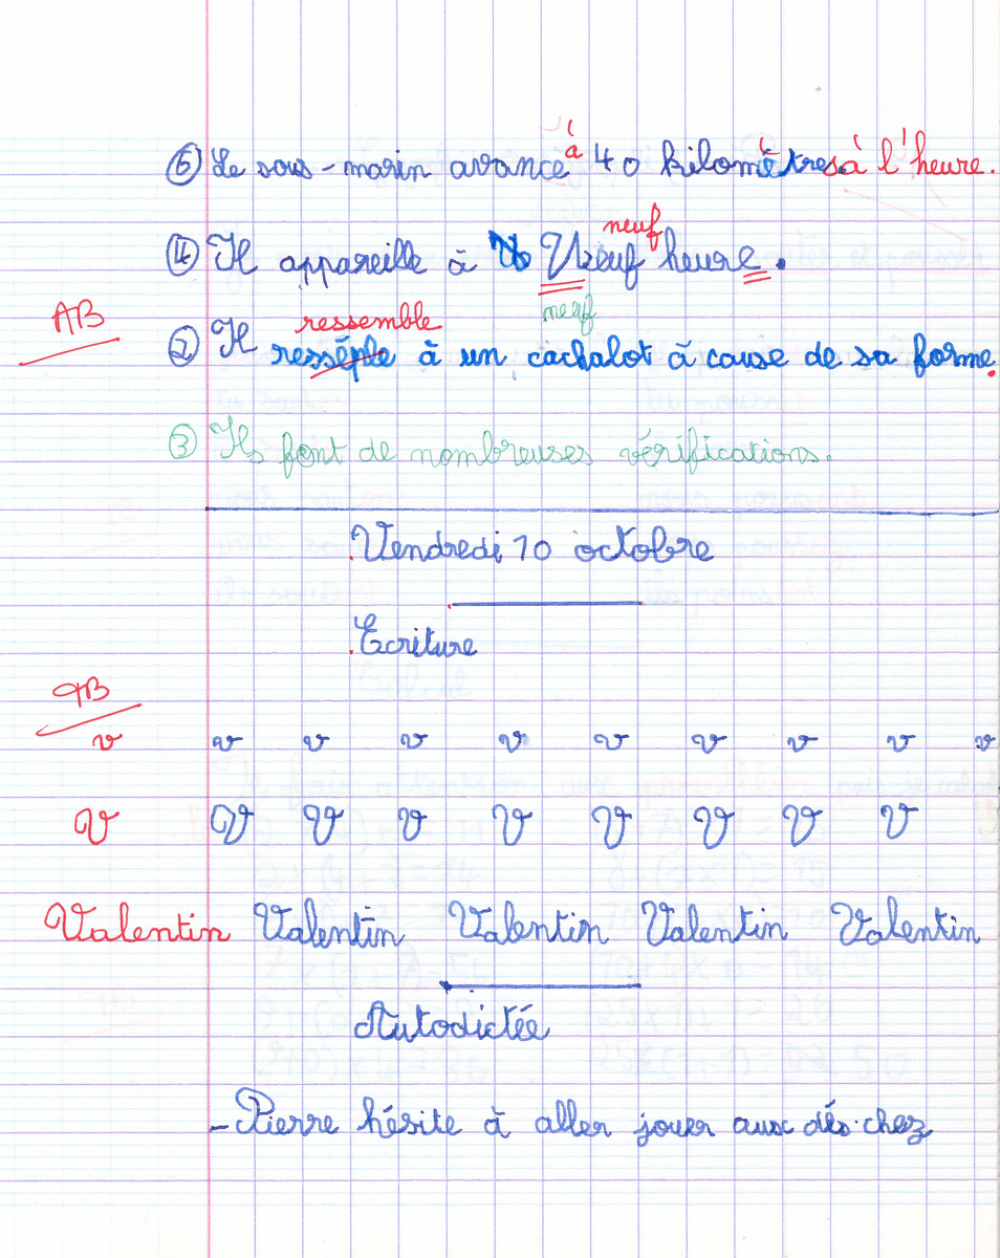 à
⑤ Le sous-marin avance 40 kilomètres à l'heure.
neuf
④ Il appareille à Neuf heure.
neuf
AB
ressemble
② Il resséple à un cachalot à cause de sa forme.
③ Ils font de nombreuses vérifications.
Vendredi 10 octobre
Ecriture
TB
v v v v v v v v v v
V V V V V V V V V
Valentin Valentin Valentin Valentin Valentin
Autodictée
- Pierre hésite à aller jouer aux dés chez